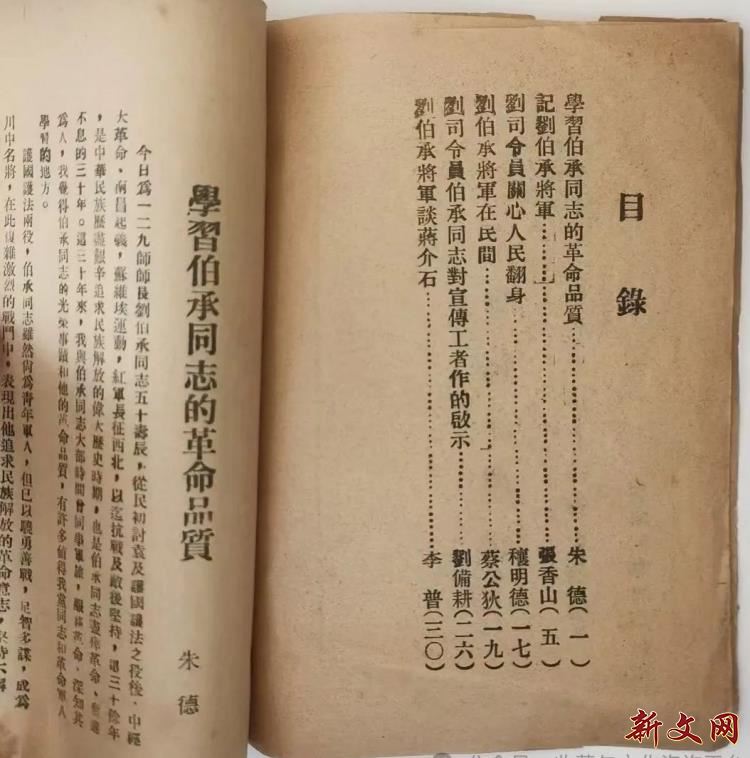 目錄
學習伯承同志的革命品質……朱　德（一）
記劉伯承將軍……張香山（五）
劉司令員關心人民翻身……穰明德（一七）
劉伯承將軍在民間……蔡公狄（一九）
劉司令員伯承同志對宣傳工者作的啟示……劉備耕（二六）
劉伯承將軍談蔣介石……李　普（三〇）
學習伯承同志的革命品質
朱　德
今日爲一二九師師長劉伯承同志五十壽辰，從民初討袁及護國護法之役後，中經
大革命，南昌起義，蘇維埃運動，紅軍長征西北，以迄抗戰及敵後堅持，這三十餘年
，是中華民族歷盡艱辛追求民族解放的偉大歷史時期，也是伯承同志盡瘁革命、奮鬥
不息的三十年。這三十年來，我與伯承同志大部時間曾同事軍旅，服務革命，深知其
爲人，我覺得伯承同志的光榮事蹟和他的革命品質，有許多値得我黨同志和革命軍人
學習的地方。
護國護法兩役，伯承同志雖然尙爲靑年軍人，但已以聰勇善戰，足智多謀，成爲
川中名將，在此複雜激烈的戰鬥中，表現出他追求民族解放的革命意志，堅持不
新文网